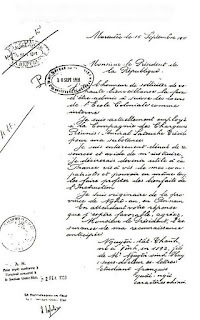 Marseille le 15 Septembre 1911
Monsieur le Président de
la République
l'honneur de solliciter de vo
haute bienveillance la faveur
d'être admis à suivre les cours
de l'École Coloniale comme
interne
Je suis actuellement employé
à la Compagnie des Chargeurs
Réunis: Amiral Latouche-Tréville
pour ma subsistance
Je suis entièrement dénué de
ressources et avide de m'instruire
Je désirerais devenir utile à la
France vis à vis de mes com
patriotes et pouvoir en même temps
les faire profiter des bienfaits de
l'Instruction
Je suis originaire de la pro
vince de Nghê-an, en Annam
En attendant votre réponse
que j'espère favorable, agréez
Monsieur le Président, l'as
surance de ma reconnaissance
anticipée
Nguyễn Tất Thành
né à Vinh, en 1892, fils de
étudiant français
quốc-ngữ
caractères chinois